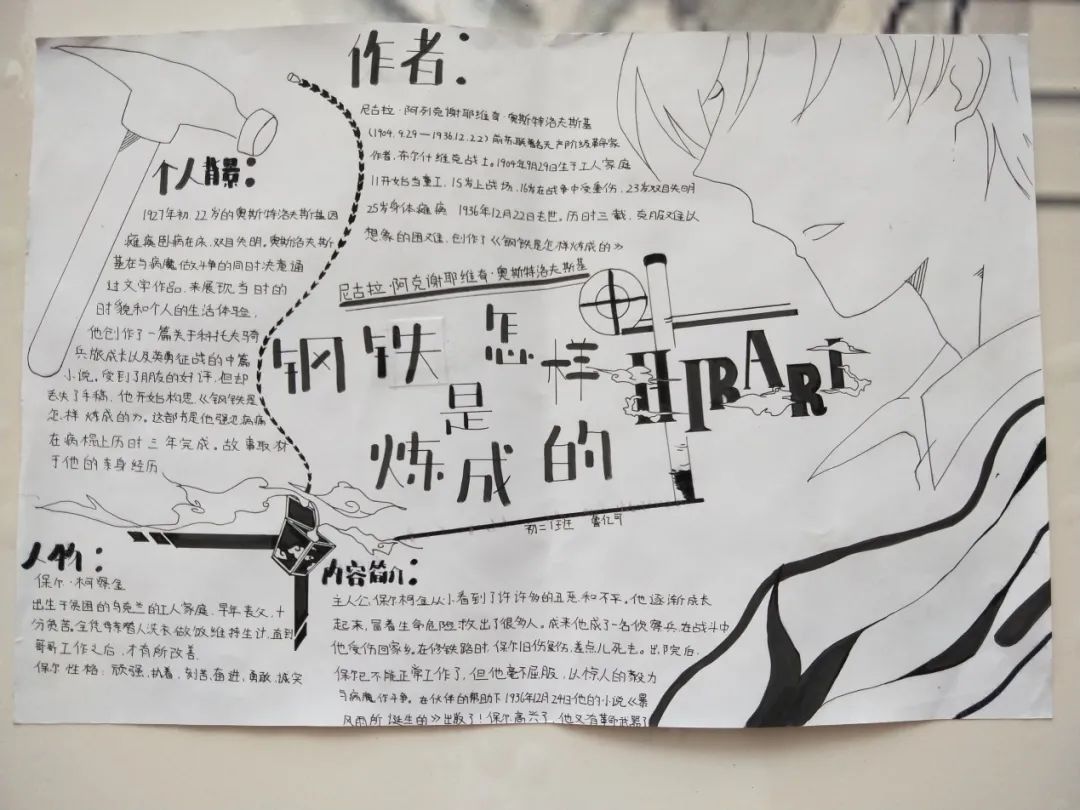 作者：
尼古拉·阿列克谢耶维奇·奥斯特洛夫斯基
(1904.9.29—1936.12.22) 前苏联著名无产阶级革命家
作者，布尔什维克战士。1904年9月29日生于工人家庭
11开始当童工，15岁上战场，16岁在战争中受重伤，23岁双目失明
25岁身体瘫痪 1936年12月22日去世。历时三载，克服难以
想象的困难，创作了《钢铁是怎样炼成的》
个人背景：
1927年初，22岁的奥斯特洛夫斯基因
瘫痪卧病在床，双目失明。奥斯洛夫斯
基在与病魔做斗争的同时决意通
过文学作品，来展现当时的
时貌和个人的生活体验，
他创作了一篇关于科托夫骑
兵旅成长以及英勇征战的中篇
小说。受到了朋友的好评，但却
丢失了手稿，他开始构思《钢铁是
怎样炼成的》。这部书是他强忍病痛
在病榻上历时三年完成。故事取材
于他的亲身经历
尼古拉·阿克谢耶维奇·奥斯特洛夫斯基
钢铁怎样
是
炼成的
HIBARI
初二1班
人物：
保尔·柯察金
出生于贫困的乌克兰的工人家庭，早年丧父，十
分贫苦，全凭母亲替人洗衣做饭维持生计，直到
哥哥工作之后，才有所改善
保尔性格：顽强，执着，刻苦，奋进，勇敢，诚实
内容简介：
主人公，保尔柯金从小看到了许许多的丑恶和不平。他逐渐成长
起来，冒着生命危险救出了很多人。后来他成了一名侦察兵，在战斗中
他受伤回家乡。在修铁路时，保尔旧伤复伤，差点儿死去。出院后，
保尔已不能正常工作了，但他毫不屈服，以惊人的毅力
与病魔作斗争。在伙伴的帮助下1936年12月24日他的小说《暴
风雨所诞生的》出版了！保尔高兴了，他又有革命武器了